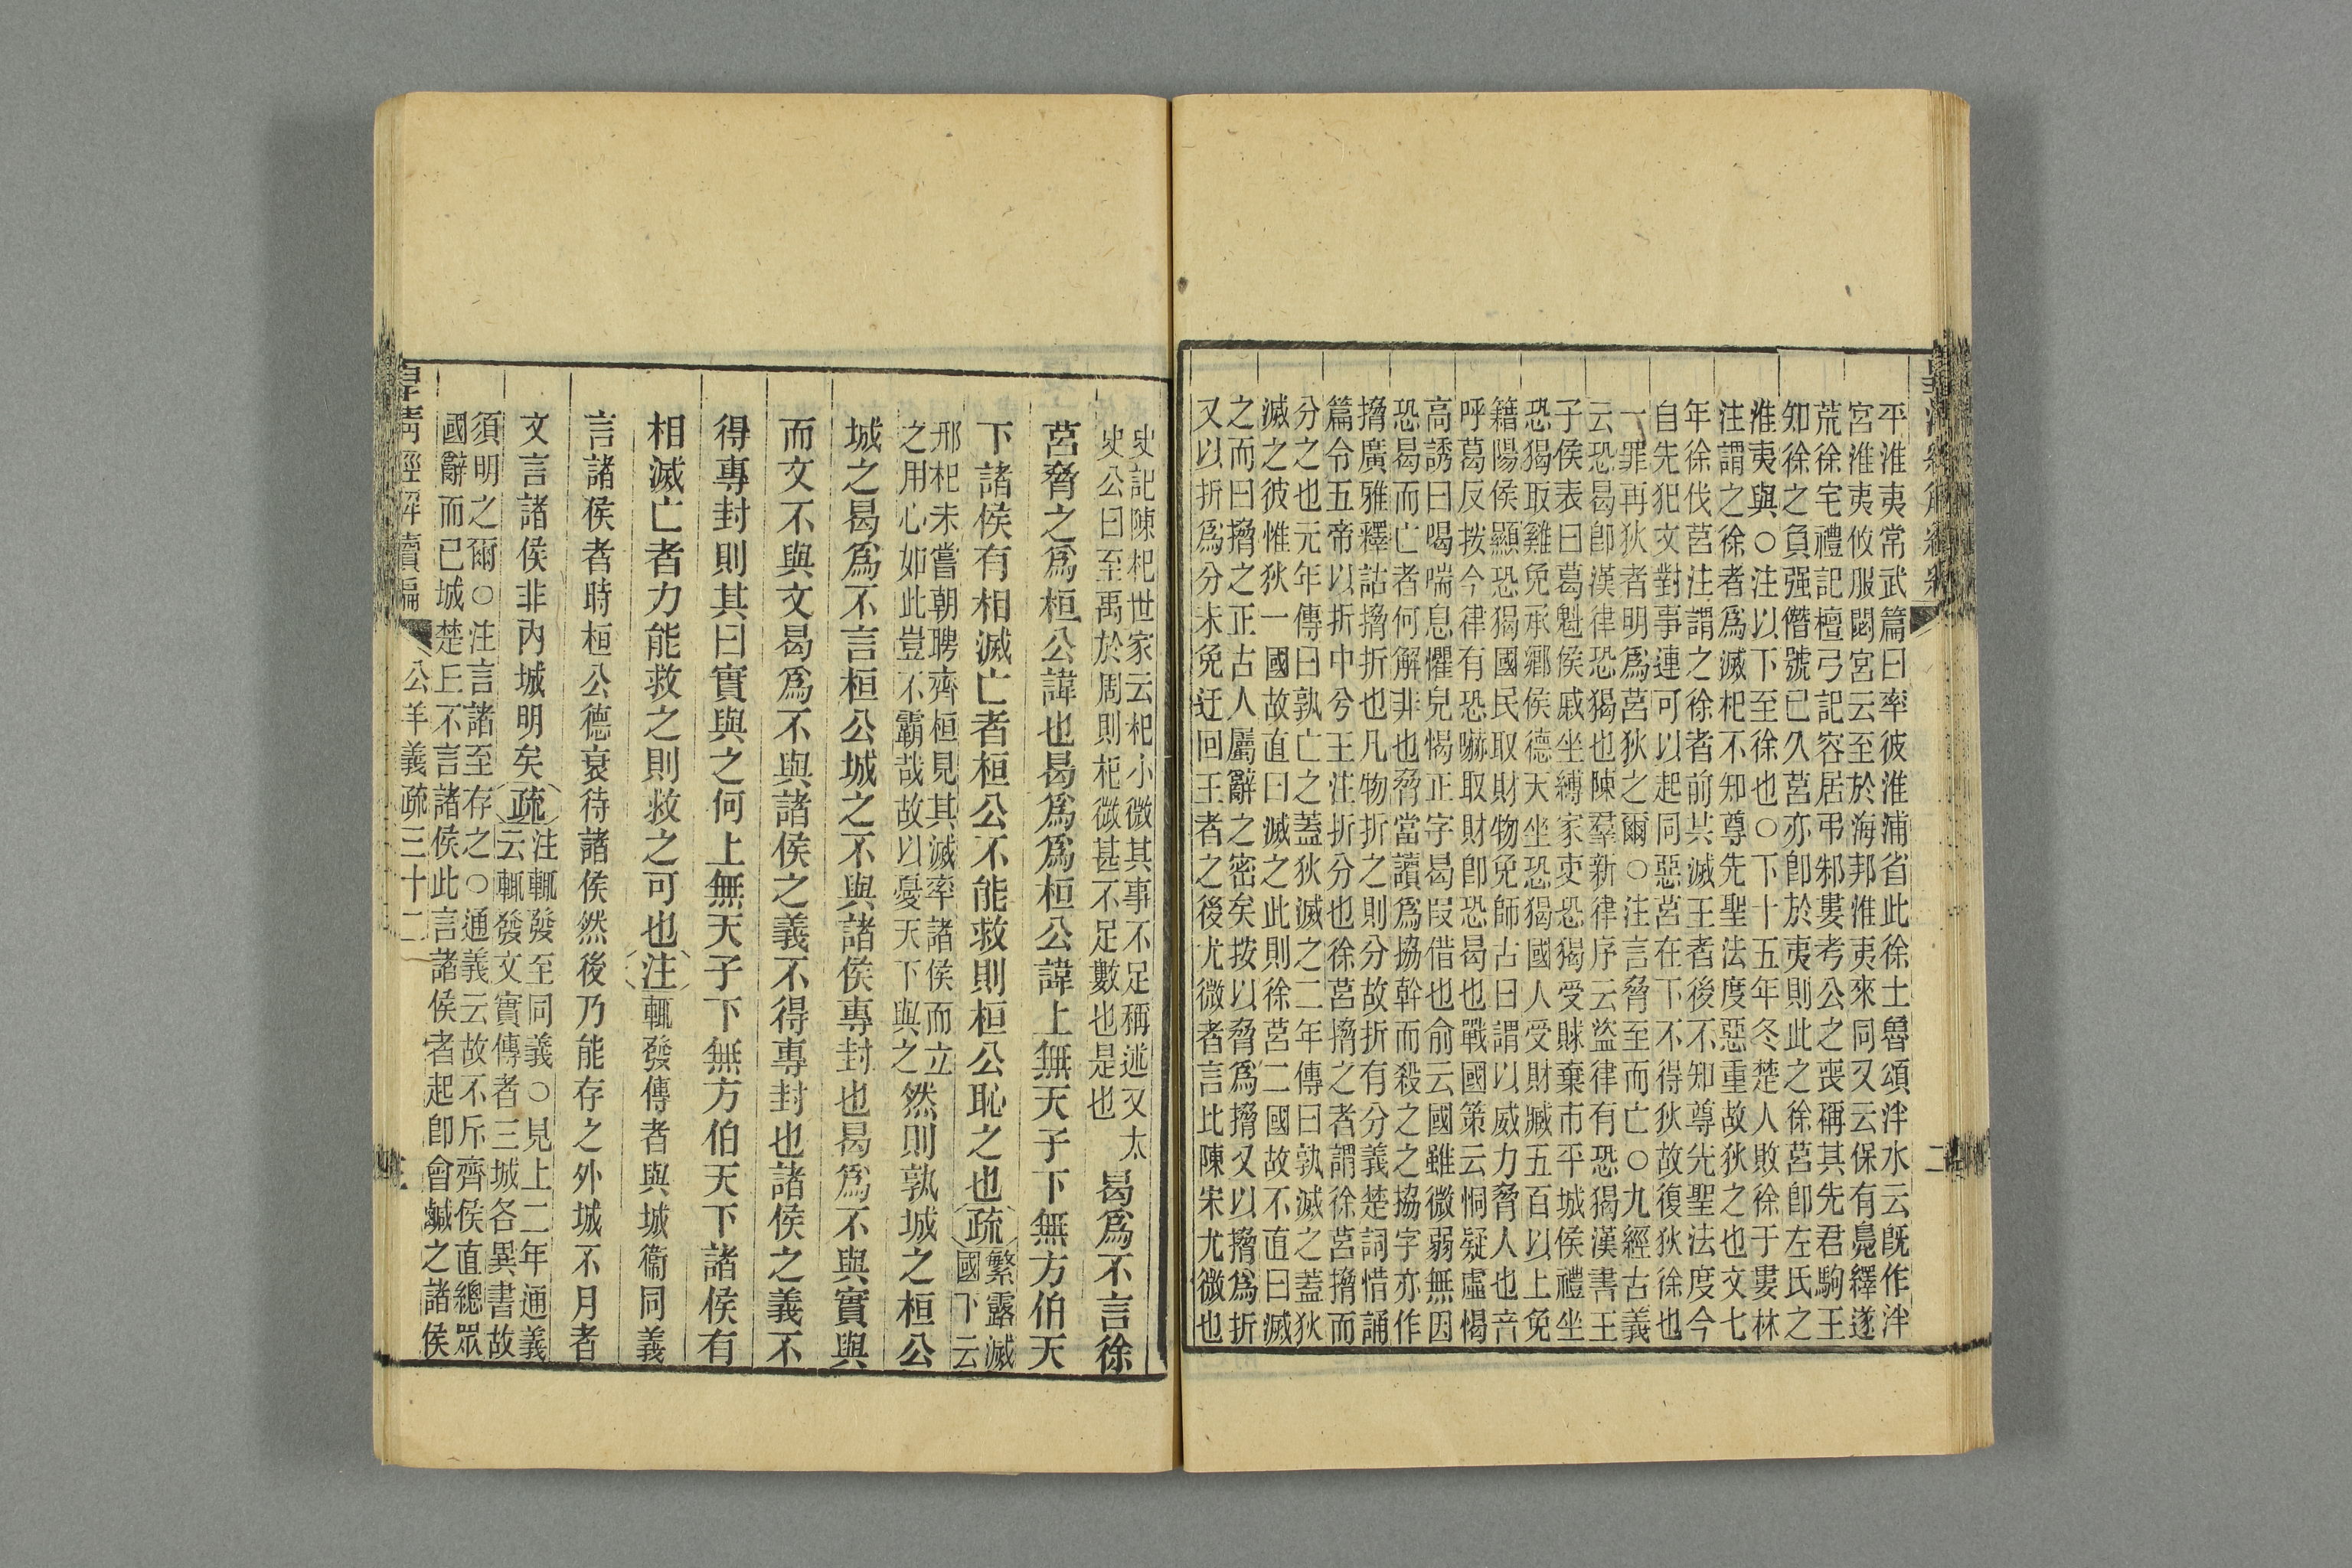 平淮夷常武篇曰率彼淮浦省此徐土魯頌泮水云既作泮
宮淮夷攸服閟宮云至於海邦淮夷來同又云保有鳧繹遂
荒徐宅禮記檀弓記容居弔邾婁考公之喪稱其先君駒王
知徐之負强僭號已久莒亦卽於夷則此之徐莒卽左氏之
淮夷與○注以下至徐也○下十五年冬楚人敗徐于婁林
注謂之徐者爲滅杞不知尊先聖法度惡重故狄之也文七
年徐伐莒注謂之徐者前共滅王者後不知尊先聖法度今
自先犯文對事連可以起同惡莒在下不得狄故復狄徐也
一罪再狄者明爲莒狄之爾○注言脅至而亡○九經古義
云恐曷卽漢律恐猲也陳羣新律序云盜律有恐猲漢書王
子侯表曰葛魁侯戚坐縛家吏恐猲受賕棄市平城侯禮坐
恐猲取雞免承鄉侯德天坐恐猲國人受財臧五百以上免
籍陽侯顯恐猲國民取財物免師古曰謂以威力脅人也音
呼葛反按今律有恐嚇取財卽恐曷也戰國策云恫疑虛愒
高誘曰喝喘息懼皃愒正字曷叚借也俞云國雖微弱無因
恐曷而亡者何解非也脅當讀爲協幹而殺之之協字亦作
搚廣雅釋詁搚折也凡物折之則分故折有分義楚詞惜誦
篇令五帝以折中兮王注折分也徐莒搚之者謂徐莒搚而
分之也元年傳曰孰亡之蓋狄滅之二年傳曰孰滅之蓋狄
滅之彼惟狄一國故直曰滅之此則徐莒二國故不直曰滅
之而曰搚之正古人屬辭之密矣按以脅爲搚又以搚爲折
又以折爲分未免迂回王者之後尤微者言比陳宋尤微也
史記陳杞世家云杞小微其事不足稱述又太
史公曰至禹於周則杞微甚不足數也是也
曷爲不言徐
莒脅之爲桓公諱也曷爲爲桓公諱上無天子下無方伯天
下諸侯有相滅亡者桓公不能救則桓公恥之也疏
繁露滅
國下云
邢杞未嘗朝聘齊桓見其滅率諸侯而立
之用心如此豈不霸哉故以憂天下與之
然則孰城之桓公
城之曷爲不言桓公城之不與諸侯專封也曷爲不與實與
而文不與文曷爲不與諸侯之義不得專封也諸侯之義不
得專封則其曰實與之何上無天子下無方伯天下諸侯有
相滅亡者力能救之則救之可也注輒發傳者與城衞同義
言諸侯者時桓公德衰待諸侯然後乃能存之外城不月者
文言諸侯非內城明矣疏
注輒發至同義○見上二年通義
云輒發文實傳者三城各異書故
須明之爾○注言諸至存之○通義云故不斥齊侯直總眾
國辭而已城楚丘不言諸侯此言諸侯者起卽會鹹之諸侯
皇清經解續編
公羊義疏三十二